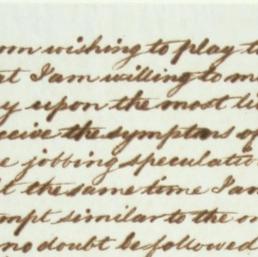 om wishing to play t
t I am willing to m
y upon the most li
ceive the symptoms of
e jobbing speculatio
t the same time I am
mpt similar to the on
no doubt be followed